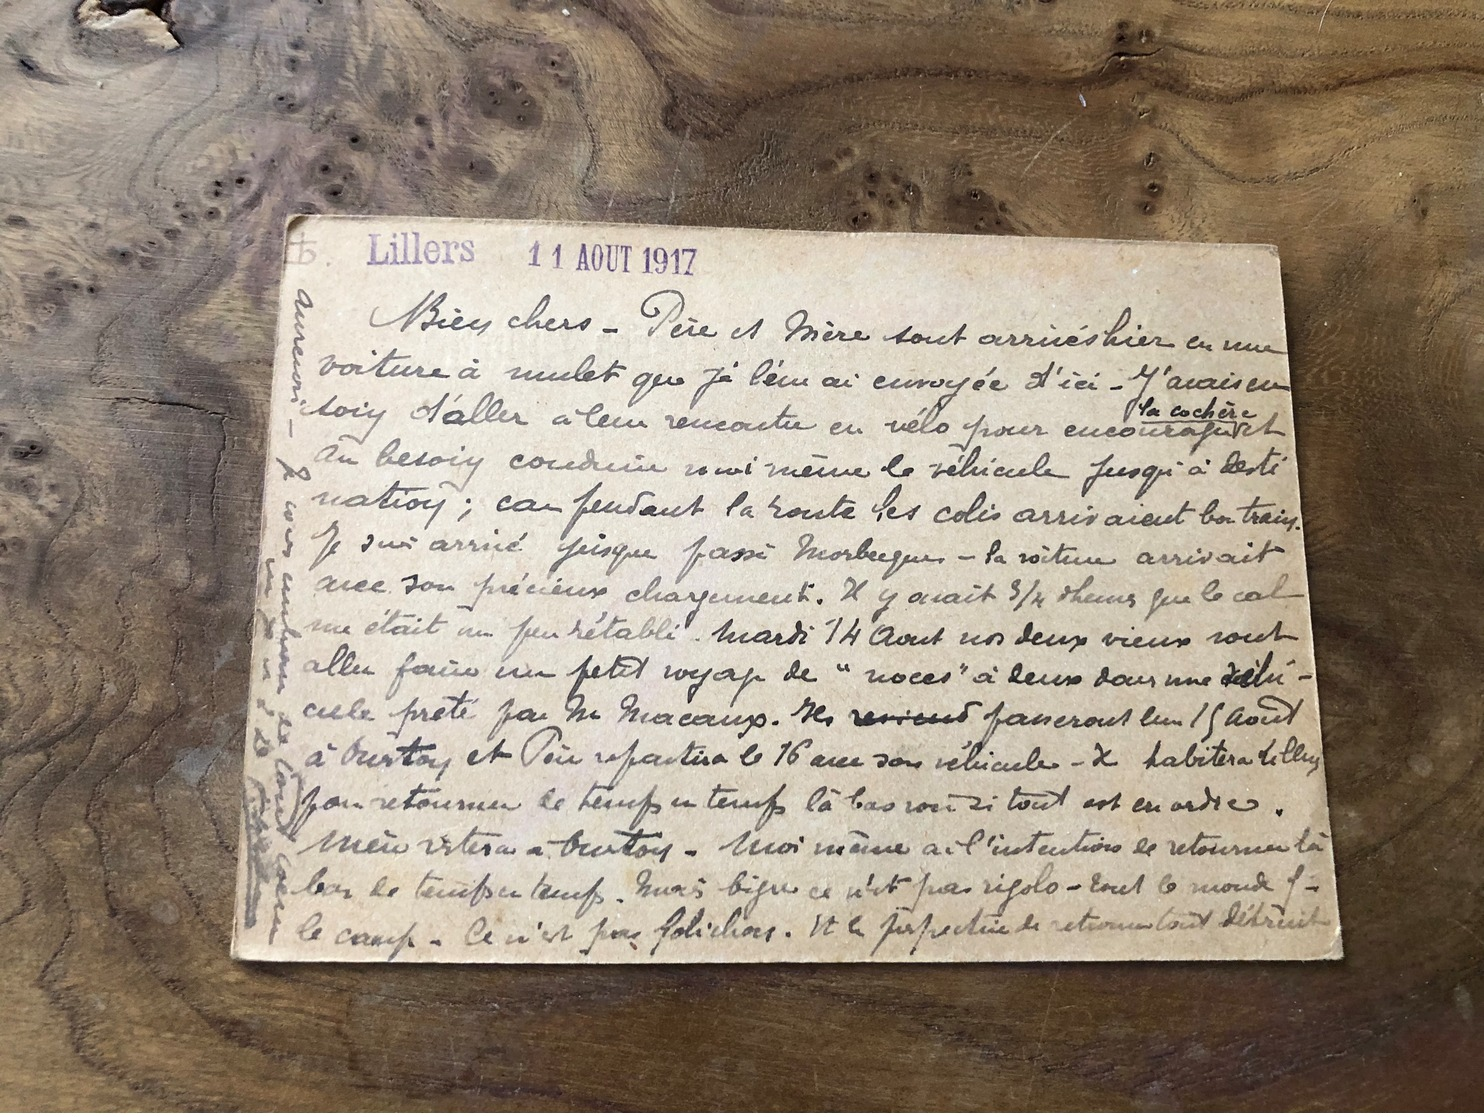 Lillers 11 AOUT 1917
Bien chers - Père et Mère sont arrivés hier en une
voiture à mulet que je leur ai envoyée d'ici - J'avais eu
soin d'aller à leur rencontre en vélo pour encourager la cochère et
au besoin conduire moi même le véhicule jusqu'à desti
nation ; car pendant la route les colis arrivaient bon train.
Je suis arrivé jusque passé Morbecque - la voiture arrivait
avec son précieux chargement. Il y avait 3/4 d'heure que le cal
me était un peu rétabli. Mardi 14 Aout nos deux vieux vont
aller faire un petit voyage de "noces" à deux dans une véhi-
cule prêté par Mr Macaux. Ils passeront leur 15 Aout
à Ourton et Père repartira le 16 avec son véhicule - Il habitera Lillers
pour retourner de temps en temps là bas voir si tout est en ordre.
Mère restera à Ourton - Moi même ai l'intention de retourner là
bas de temps en temps. Mais bigre ce n'est pas rigolo - tout le monde f-
le camp - Ce n'est pas folichon. Et la perspective de retrouver tout détruit
Aurevoir - Je vous embrasse de tout coeur